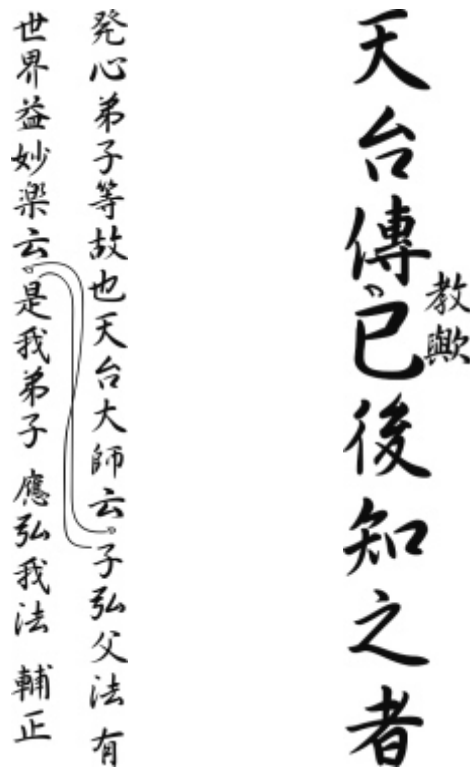 天台傳已後知之者
教歟
発心弟子等故也天台大師云。子弘父法 有
世界益妙楽云。是我弟子 應弘我法 輔正